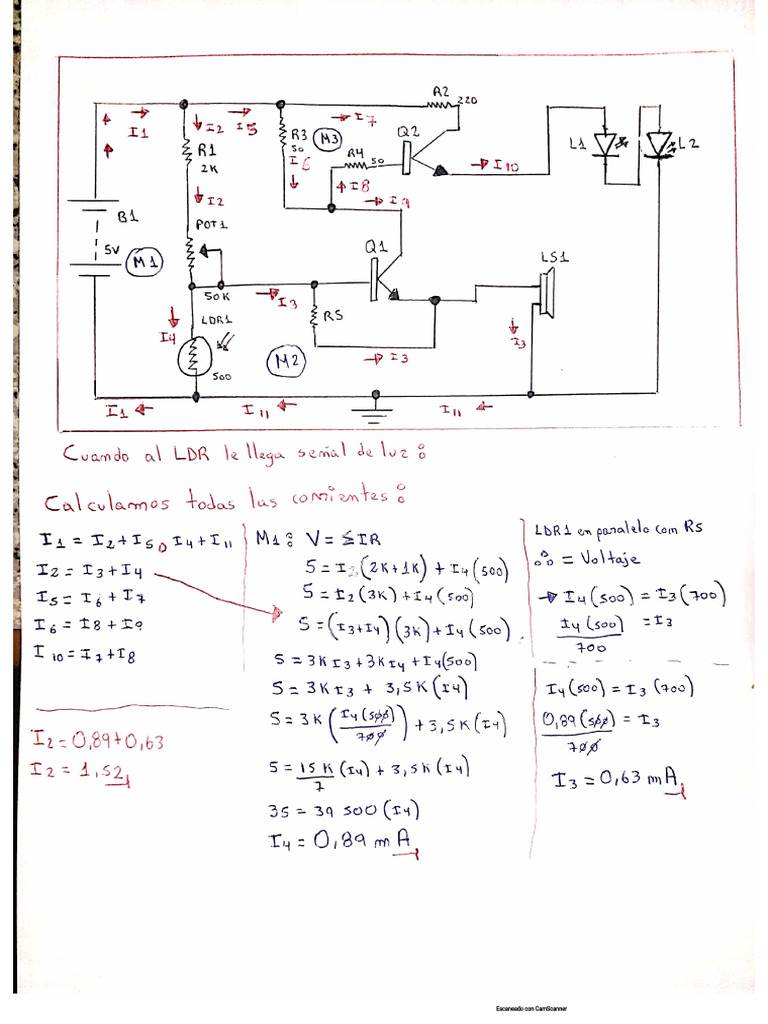 R2
220
I1
I2
I5
I7
R1
2K
R3
50
M3
I6
R4
50
Q2
I8
I10
L1
L2
I2
I9
B1
5V
M1
POT1
50K
Q1
I3
LS1
I4
LDR1
500
R5
M2
I3
I3
I1
I11
I11
Cuando al LDR le llega señal de luz:
Calculamos todas las corrientes:
I1 = I2 + I5 o I4 + I11
I2 = I3 + I4
I5 = I6 + I7
I6 = I8 + I9
I10 = I7 + I8
I2 = 0,89 + 0,63
I2 = 1,52
M1: V = ΣIR
5 = I2 (2K+1K) + I4 (500)
5 = I2 (3K) + I4 (500)
5 = (I3+I4) (3K) + I4 (500)
5 = 3K I3 + 3K I4 + I4 (500)
5 = 3K I3 + 3,5K (I4)
5 = 3K (I4 (500) / 700) + 3,5K (I4)
5 = 15K / 7 (I4) + 3,5K (I4)
35 = 39 500 (I4)
I4 = 0,89 mA
LDR1 en paralelo con R5
∴ = Voltaje
→ I4 (500) = I3 (700)
I4 (500) / 700 = I3
I4 (500) = I3 (700)
0,89 (500) / 700 = I3
I3 = 0,63 mA
Escaneado con CamScanner